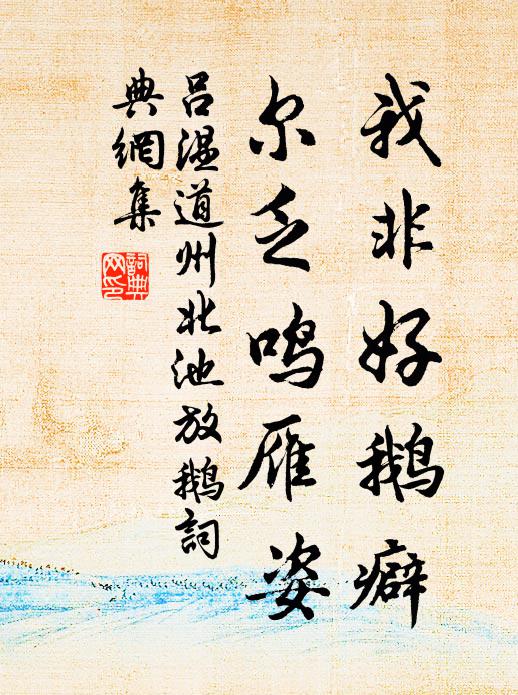 我非好鹅癖
尔乏鸣雁姿
吕温道州北池放鹅词
典網集
詞典
网印